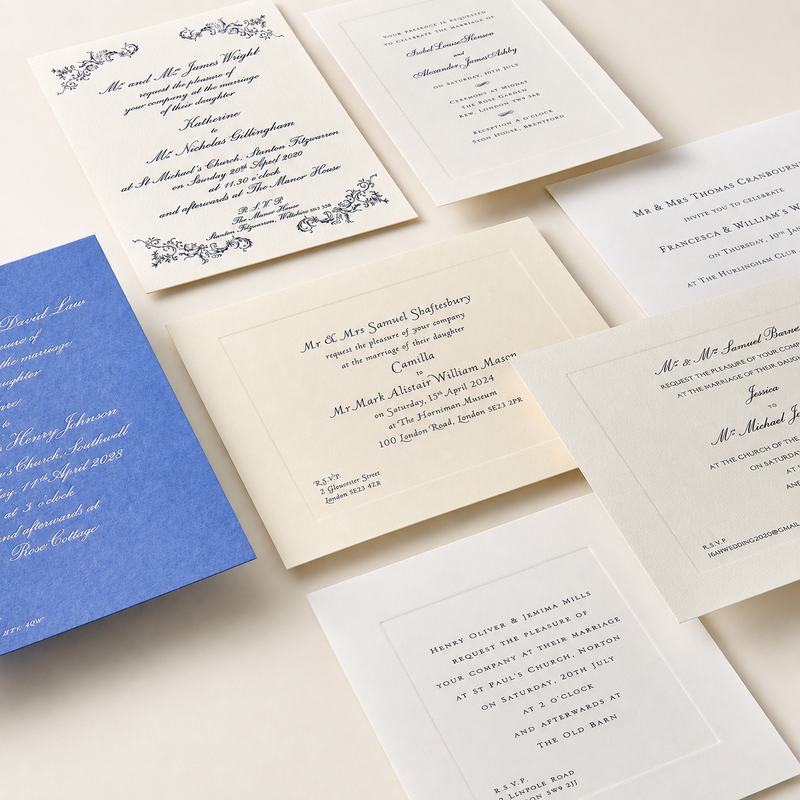 Mr and Mrs James Wright
request the pleasure of
your company at the marriage
of their daughter
Katherine
to
Mr Nicholas Gillingham
at St Michael's Church, Stanton Fitzwarren
on Saturday 20th April 2020
at 11.30 o'clock
and afterwards at The Manor House
R.S.V.P
The Manor House
Stanton Fitzwarren, Wiltshire
YOUR PRESENCE IS REQUESTED
TO CELEBRATE THE MARRIAGE OF
Isobel Louise Henson
and
Alexander James Ashby
ON SATURDAY, 10TH JULY
CEREMONY AT MIDDAY
THE ROSE GARDEN
KEW, LONDON TW9 5AE
RECEPTION 4 O'CLOCK
SYON HOUSE, BRENTFORD
MR & MRS THOMAS CRANBOURN
INVITE YOU TO CELEBRATE
FRANCESCA & WILLIAM'S W
ON THURSDAY, 10TH JAN
AT THE HURLINGHAM CLUB
David Law
sure of
the marriage
ughter
to
Henry Johnson
's Church, Southwell
ay, 11th April 2028
at 3 o'clock
nd afterwards at
Rose Cottage
4QW
Mr & Mrs Samuel Shaftesbury
request the pleasure of your company
at the marriage of their daughter
Camilla
to
Mr Mark Alistair William Mason
on Saturday, 15th April 2024
at The Horniman Museum
100 London Road, London SE23 2PR
R.S.V.P.
2 Gloucester Street
London SE23 4ZR
Mr & Mrs Samuel Barne
REQUEST THE PLEASURE OF YOUR COMP
AT THE MARRIAGE OF THEIR DAUG
Jessica
TO
Mr Michael Jo
AT THE CHURCH OF THE
ON SATURDA
AT
AND
R.S.V.P.
16AHWEDDING2020@GMAIL
HENRY OLIVER & JEMIMA MILLS
REQUEST THE PLEASURE OF
YOUR COMPANY AT THEIR MARRIAGE
AT ST PAUL'S CHURCH, NORTON
ON SATURDAY, 20TH JULY
AT 2 O'CLOCK
AND AFTERWARDS AT
THE OLD BARN
R.S.V.P.
2 LLNPOLE ROAD
LONDON SW9 2JJ